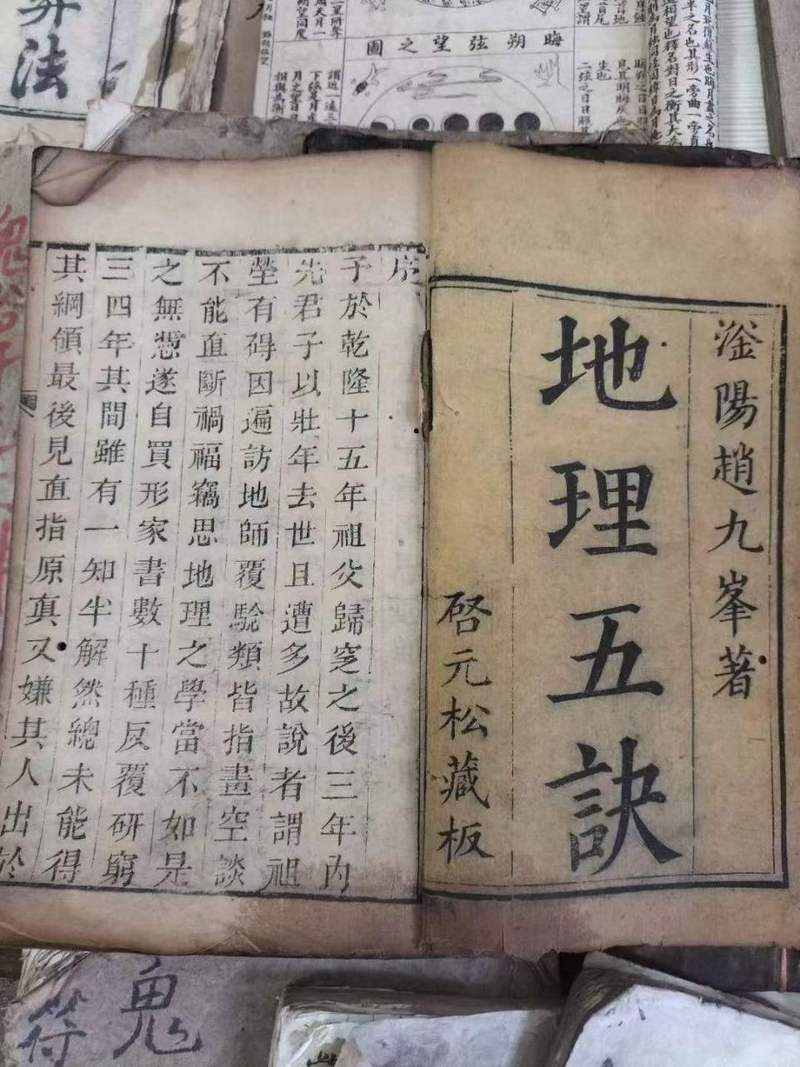 晦朔弦望之圖
算法
滏陽趙九峯著
地理五訣
啓元松藏板
序
予於乾隆十五年祖父歸窆之後三年內
先君子以壯年去世且遭多故說者謂祖
塋有碍因遍訪地師覆驗類皆指畫空談
不能直斷禍福竊思地理之學當不如是
之無憑遂自買形家書數十種反覆研窮
三四年其間雖有一知半解然總未能得
其綱領最後見直指原真又嫌其人出於
鬼
符